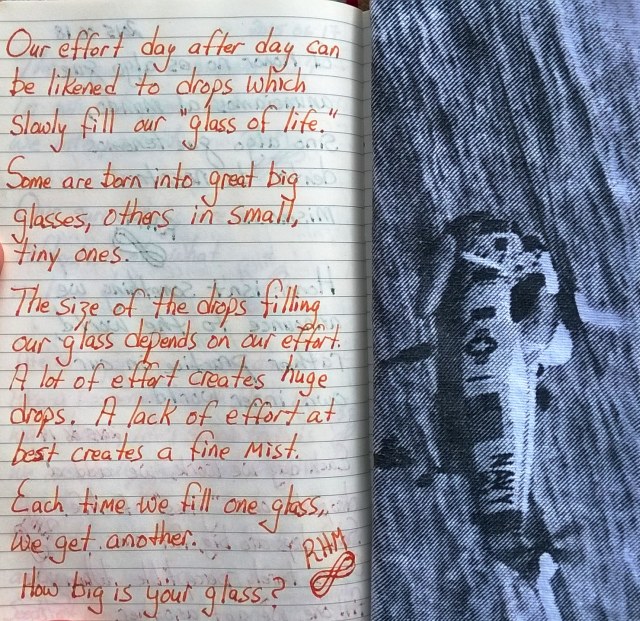 Our effort day after day can
be likened to drops which
slowly fill our "glass of life."
Some are born into great big
glasses, others in small,
tiny ones.
The size of the drops filling
our glass depends on our effort.
A lot of effort creates huge
drops. A lack of effort at
best creates a fine mist.
Each time we fill one glass,
we get another.
How big is your glass?
RHM